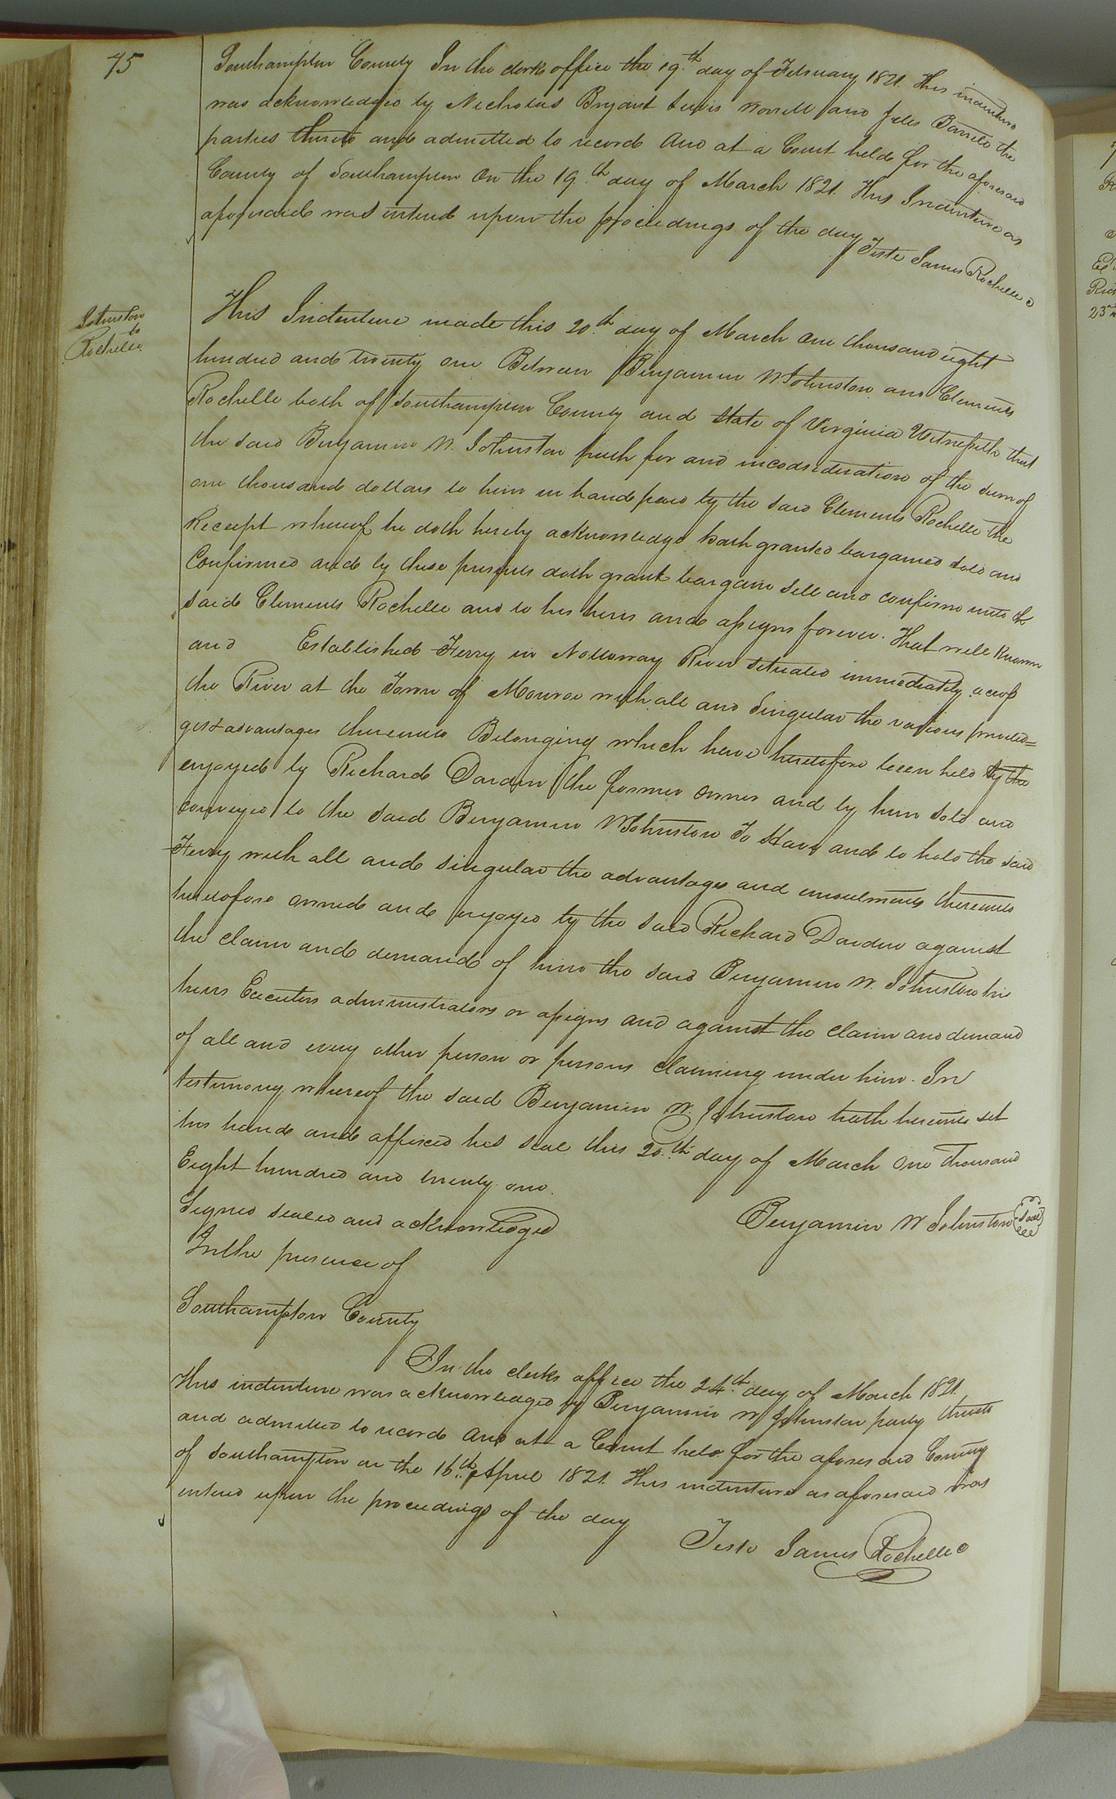 75
Southampton County In the clerks office the 19.th day of February 1821. This indenture
was acknowledged by Nicholas Bryant Lewis Worrell and Jiles Barrett the
parties thereto and admitted to record And at a Court held for the aforesaid
County of Southampton On the 19.th day of March 1821. This Indenture as
aforesaid was entered upon the proceedings of the day Teste James Rochelle c
Johnston
to
Rochelle
This Indenture made this 20.th day of March one thousand eight
hundred and twenty one Between Benjamin W Johnston and Clements
Rochelle both of Southampton County and State of Virginia Witnesseth that
the said Benjamin W. Johnston hath for and inconsideration of the sum of
one thousand dollars to him in hand paid by the said Clements Rochelle the
Receipt whereof he doth hereby acknowledge hath granted bargained sold and
Confirmed and by these presents doth grant bargain sell and confirm unto the
said Clements Rochelle and to his heirs and assigns forever. That well known
and Established Ferry in Nottoway River situated immediately across
the River at the Town of Monroe with all and Singular the various privile=
ges & advantages thereunto Belonging which have heretofore been held by the
enjoyed by Richard Darden the former owner and by him sold and
conveyed to the said Benjamin W Johnston To Have and to hold the said
Ferry with all and singular the advantages and emoluments thereunto
heretofore owned and enjoyed by the said Richard Darden against
the claim and demand of him the said Benjamin W. Johnston his
heirs Executors administrators or assigns and against the claim and demand
of all and every other person or persons claiming under him. In
testimony whereof the said Benjamin W. Johnston hath hereunto set
his hand and affixed his seal this 20.th day of March One thousand
Eight hundred and twenty one.
Signed sealed and acknowledged
Benjamin W Johnston Seal
In the presence of
Southampton County
In the clerks office the 24.th day of March 1821.
This indenture was acknowledged by Benjamin W Johnston party thereto
and admitted to record And at a Court held for the aforesaid County
of Southampton on the 16.th April 1821. This indenture as aforesaid was
entered upon the proceedings of the day
Teste James Rochelle c